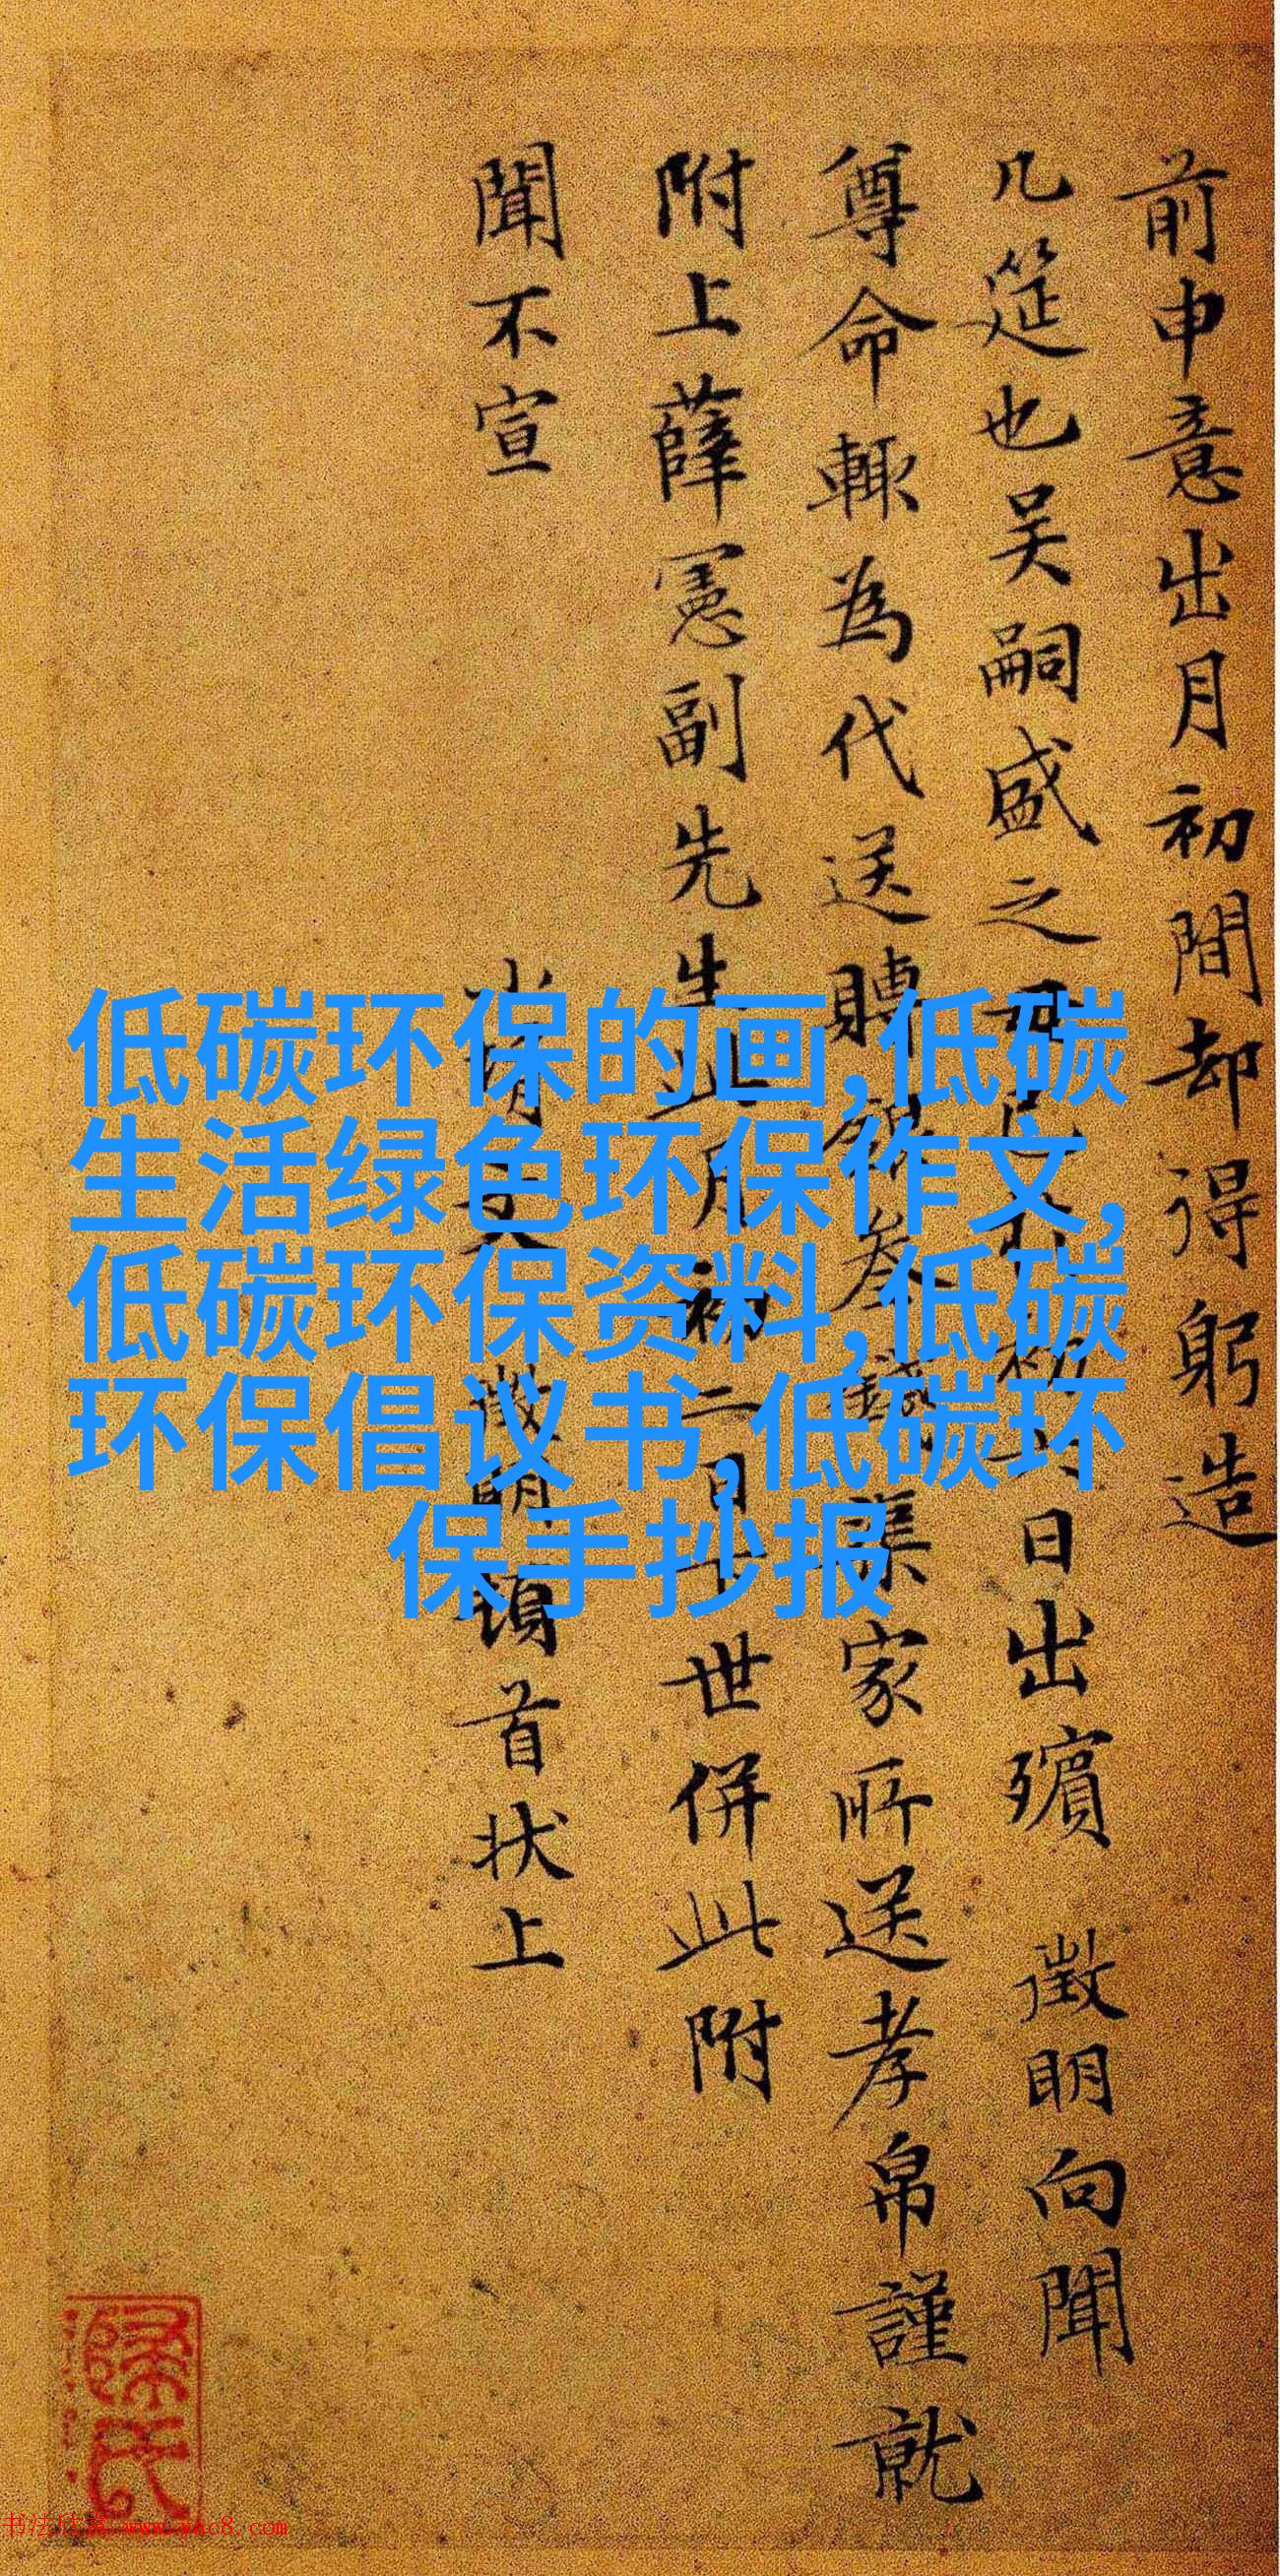 前申意出月初間却得躬造
几筵也吴嗣盛之日出殯 徵明向聞
尊命輒為代送賻家所送孝帛謹就
附上薛憲副先生月初二日世併此附
聞不宣 徵明頓首狀上
低碳环保的画,低碳
生活绿色环保作文,
低碳环保资料,低碳
环保倡议书,低碳环
保手抄报
书法欣赏 www.yac8.com